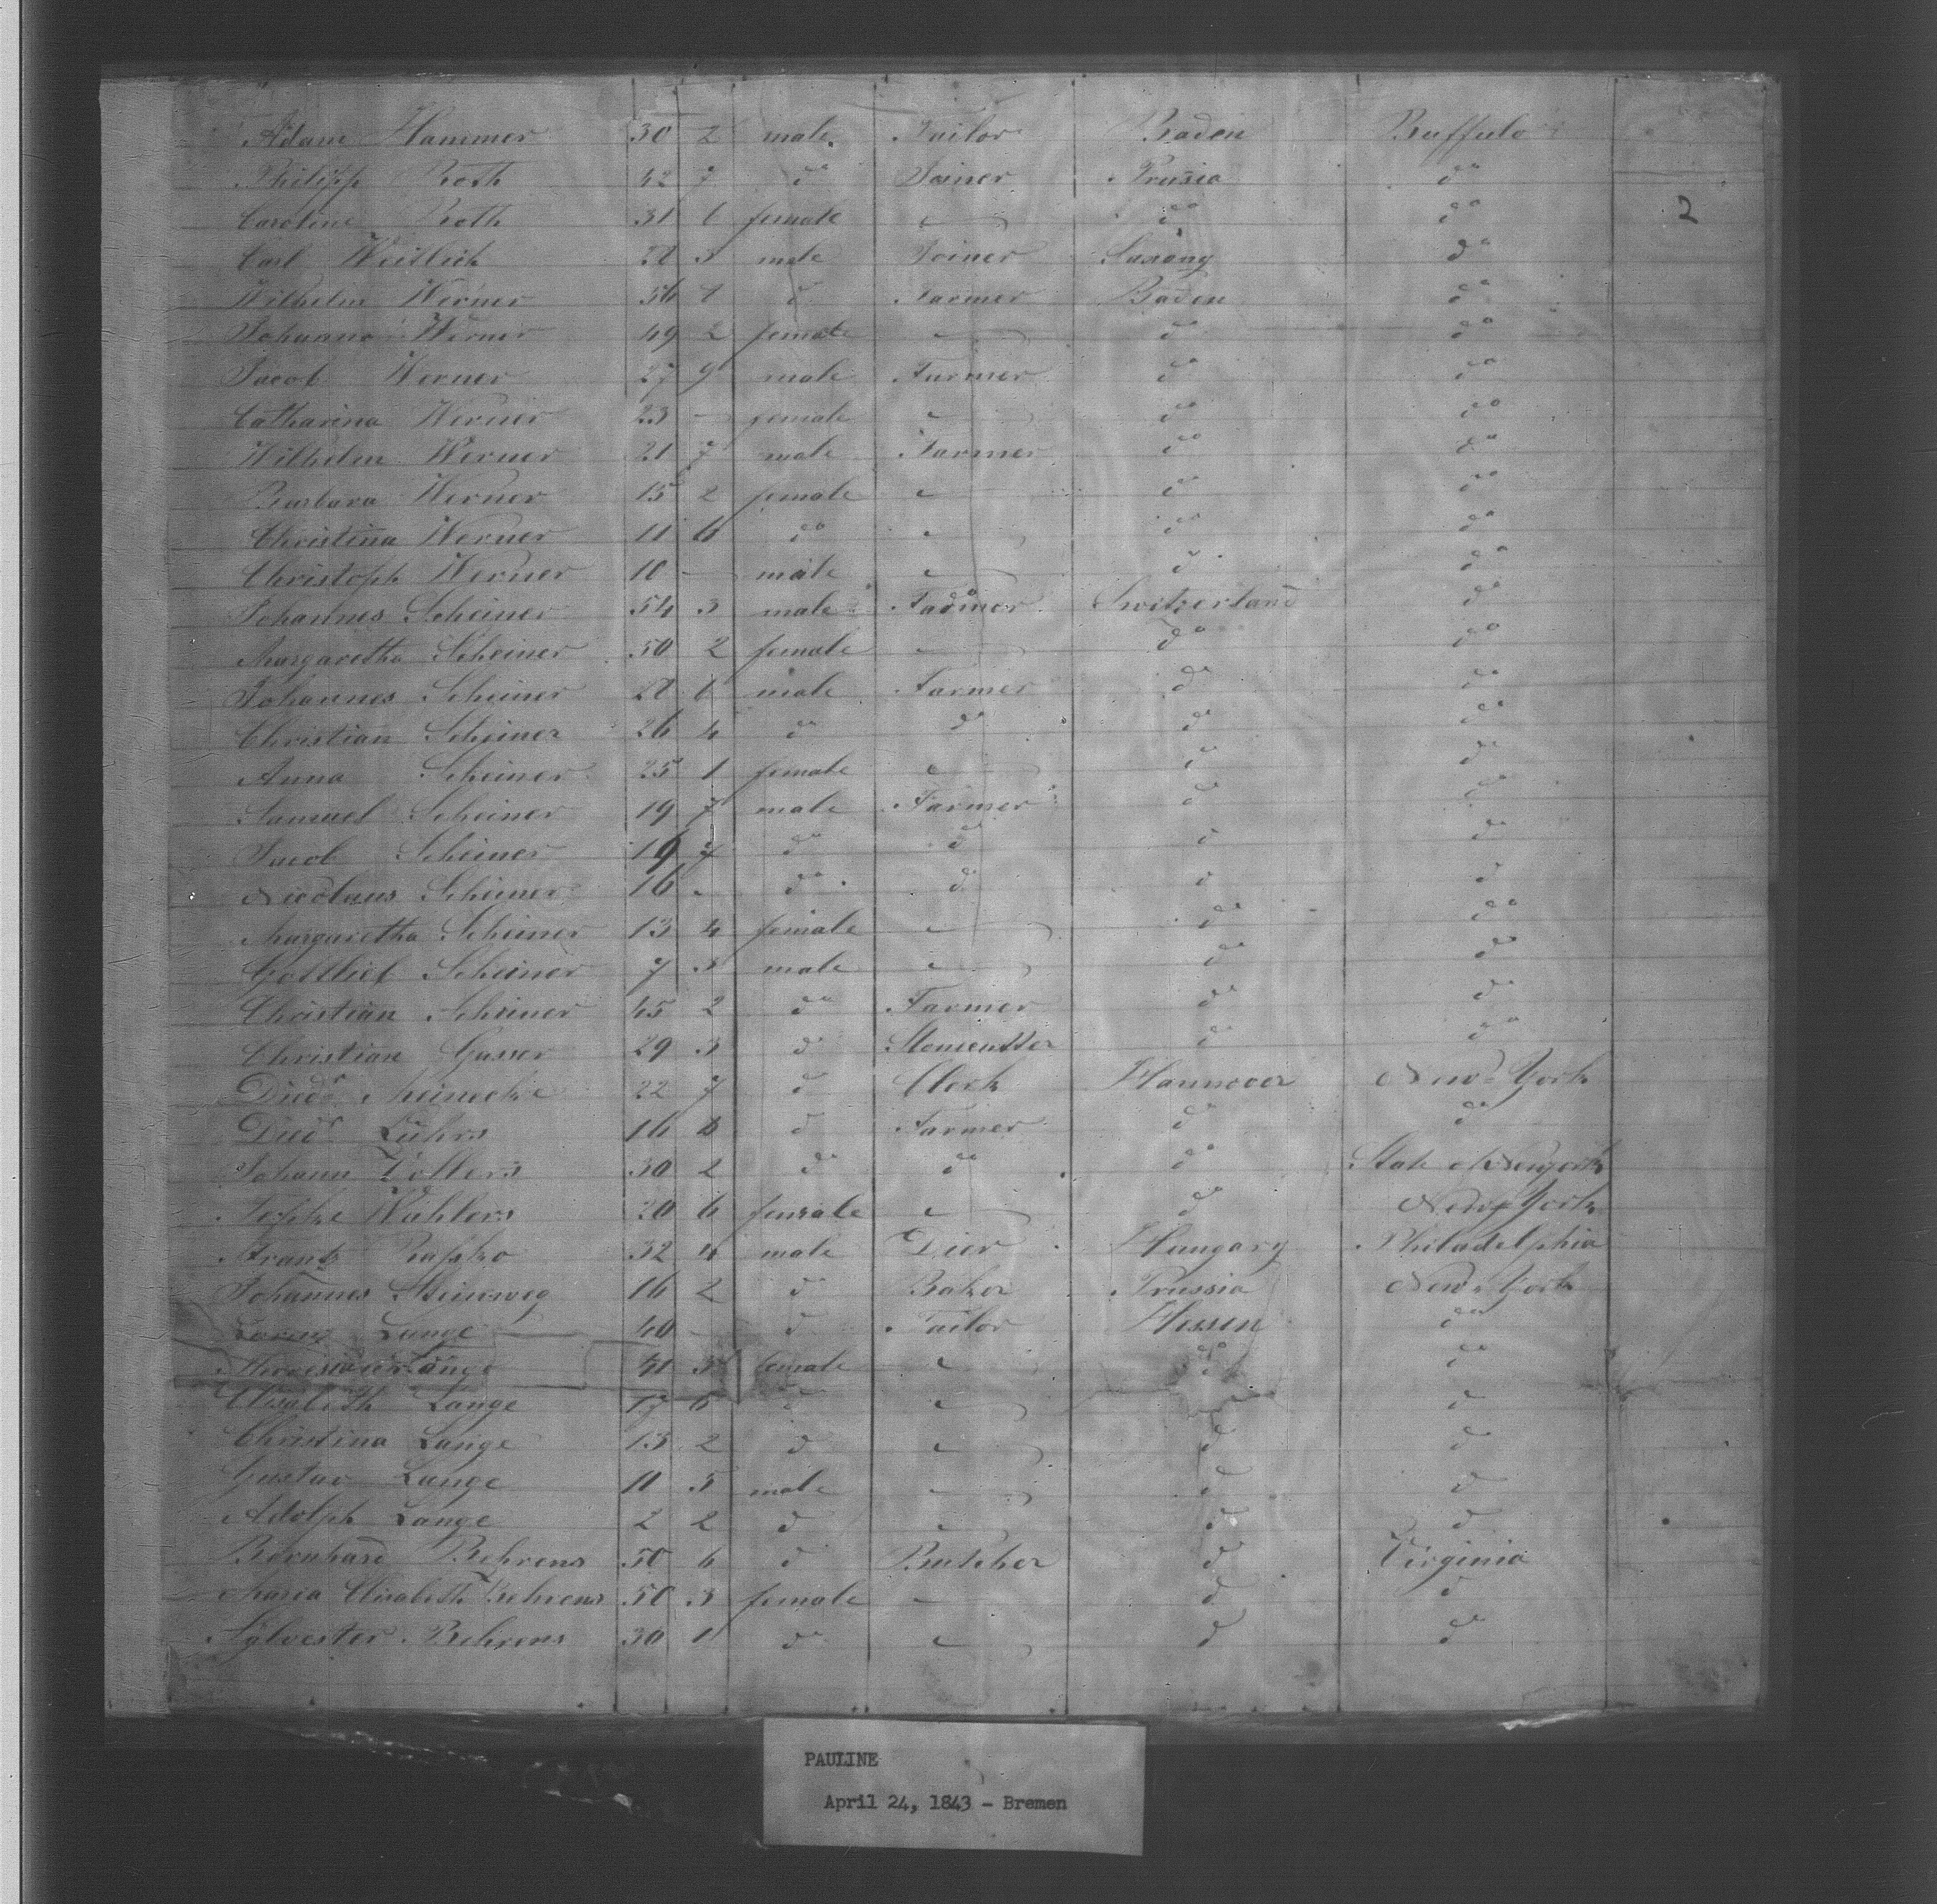 Adam Hammer 30 2 male Tailor Baden Buffulo
Philipp Roth 42 7 do Joiner Prusia do
2
Caroline Roth 31 6 female do do
Carl 22 5 male Joiner Saxony do
Wilhelm Werner 56 1 do Farmer Baden do
Johanna Werner 49 2 female do do
Jacob Werner 27 9 male Farmer do do
Catharina Werner 23 - female do do
Wilhelm Werner 21 7 male Farmer do do
Barbara Werner 15 2 female do do
Christina Werner 11 6 do do do
Christoph Werner 10 - male do do
Johannes Scheiner 54 3 male Farmer Switzerland do
Margaretha Scheiner 50 2 female do do
Johannes Scheiner male Farmer do do
Christian Scheiner 26 4 do do do do
Anna Scheiner 25 1 female do do
Samuel Scheiner 19 7 male Farmer do do
Jacob Scheiner 19 7 do do do do
Nicolaus Scheiner 16 - do do do do
Margaretha Scheiner 13 4 female do do
Gottlieb Scheiner 7 3 male do do
Christian Scheiner 45 2 do Farmer do do
Christian Gasser 29 3 do Stonecutter do do
Diedr Meinecke 22 7 do Clerk Hannover New-York
Diedr Lührs 16 8 do Farmer do do
Johann 30 2 do do do State Newyork
Wahlers 20 6 female do New York
Frantz 32 4 male Dier Hungary Philadelphia
Johannes Steinweg 16 2 do Baker Prussia New-York
Lange 40 - do Tailor Hessen do
Lange 41 3 female do do
Elisabeth Lange 17 6 do do do
Christina Lange 13 2 do do do
Gustav Lange 11 5 male do do
Adolph Lange 2 2 do do do
Bernhard Behrens 50 6 do Butcher do Virginia
Maria Elisabeth Behrens 50 3 female do do
Sylvester Behrens 30 1 do do do
PAULINE
April 24, 1843 - Bremen